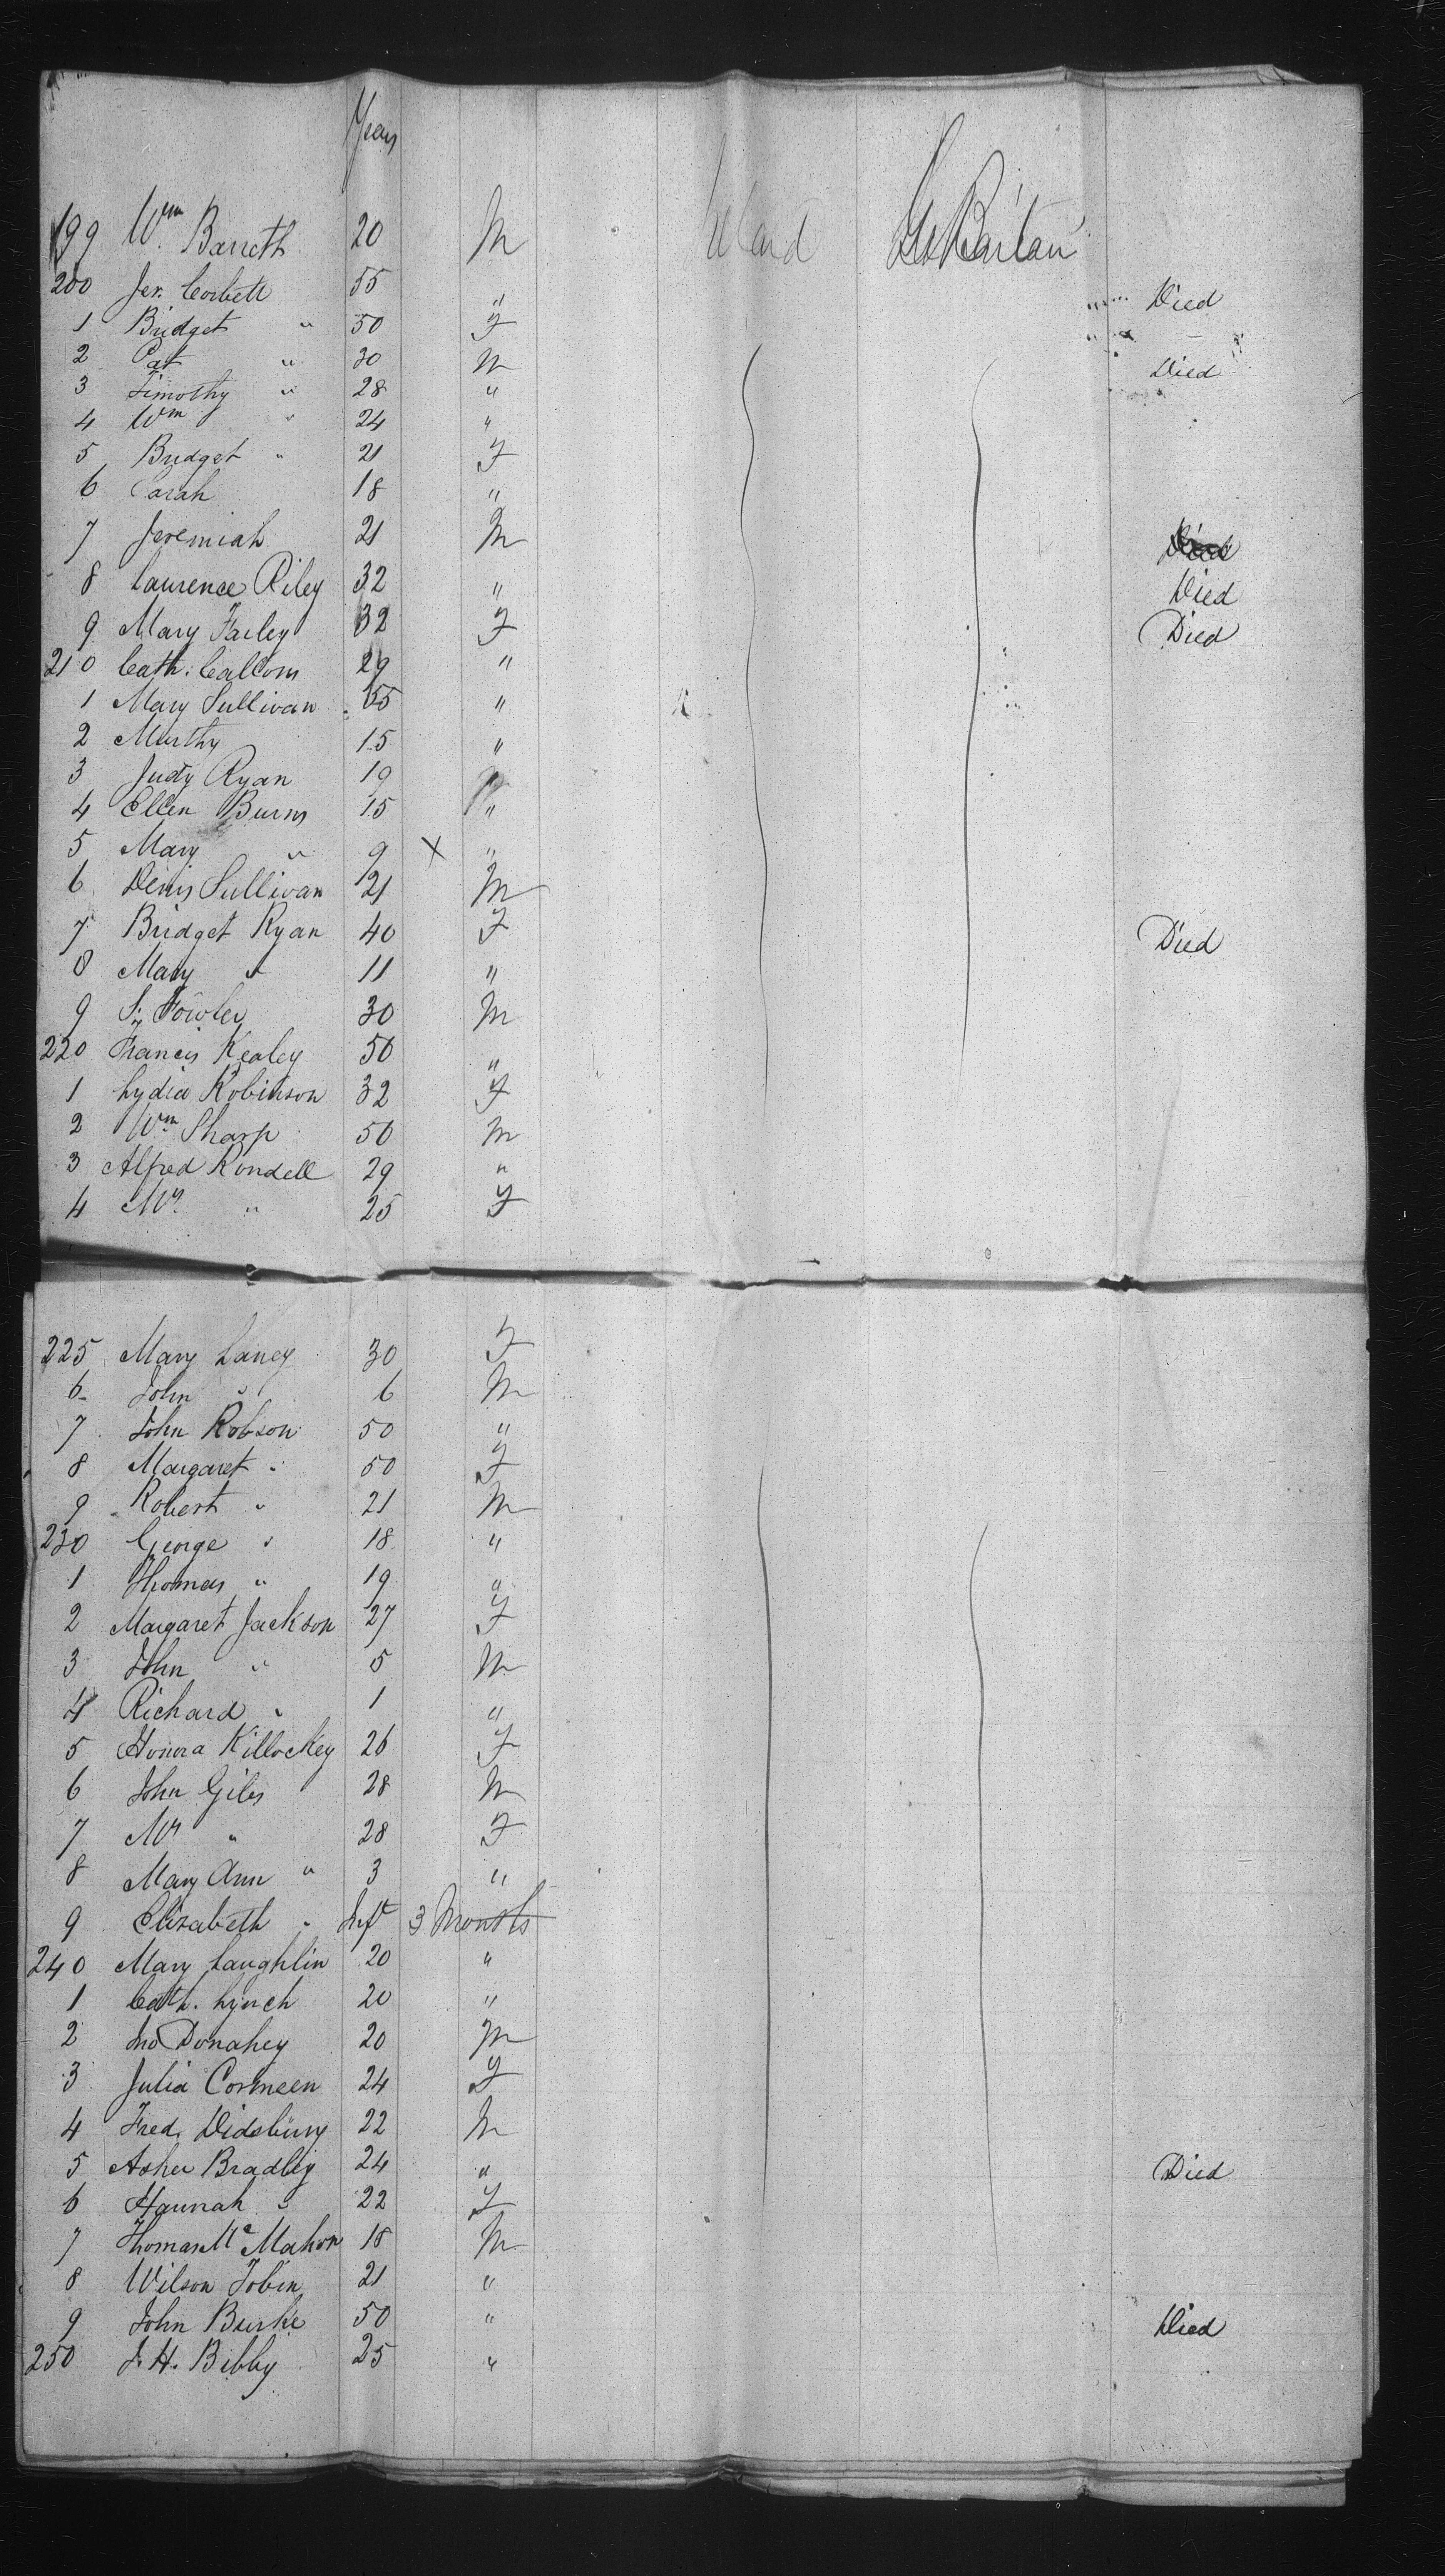 Years
199 Wm. Barreth 20 M Gt Britain
200 Jer. Corbett 55 " Died
1 Bridget " 50 F
2 Pat " 30 M Died
3 Timothy " 28 "
4 Wm " 24 "
5 Bridget " 21 F
6 Sarah 18 "
7 Jeremiah 21 M
8 Laurence Riley 32 " Died
9 Mary Farley 32 F Died
210 Cath: Callom 29 "
1 Mary Sullivan 55 "
2 Murthy 15 "
3 Judy Ryan 19 "
4 Ellen Burns 15 "
5 Mary " 9 X "
6 Denis Sullivan 21 M
7 Bridget Ryan 40 F Died
8 Mary " 11 "
9 S. Fowler 30 M
220 Francis Kealey 50 "
1 Lydia Robinson 32 F
2 Wm Sharp 50 M
3 Alfred Rondell 29 "
4 Mrs. " 25 F
225 Mary Laney 30 F
6 John " 6 M
7 John Robson 50 "
8 Margaret " 50 F
9 Robert " 21 M
230 George " 18 "
1 Thomas " 19 "
2 Margaret Jackson 27 F
3 John " 5 M
4 Richard " 1 "
5 Honora Killockey 26 F
6 John Giles 28 M
7 Mrs " 28 F
8 Mary Ann " 3 "
9 Elizabeth " Inft 3 Months
240 Mary Laughlin 20 "
1 Cath. Lynch 20 "
2 Jno Donahey 20 M
3 Julia Cormeen 24 F
4 Fred. Didsbury 22 M
5 Asher Bradley 24 " Died
6 Hannah " 22 F
7 Thomas Mc Mahon 18 M
8 Wilson Tobin 21 "
9 John Burke 50 " Died
250 J. H. Bibby 25 "